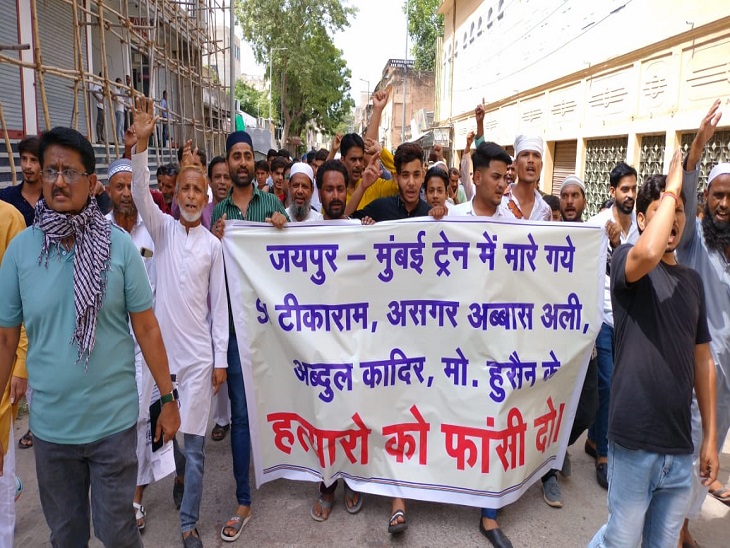 जयपुर – मुंबई ट्रेन में मारे गये
टीकाराम, असगर अब्बास अली,
अब्दुल कादिर, मो. हुसैन के
हत्यारो को फांसी दो।